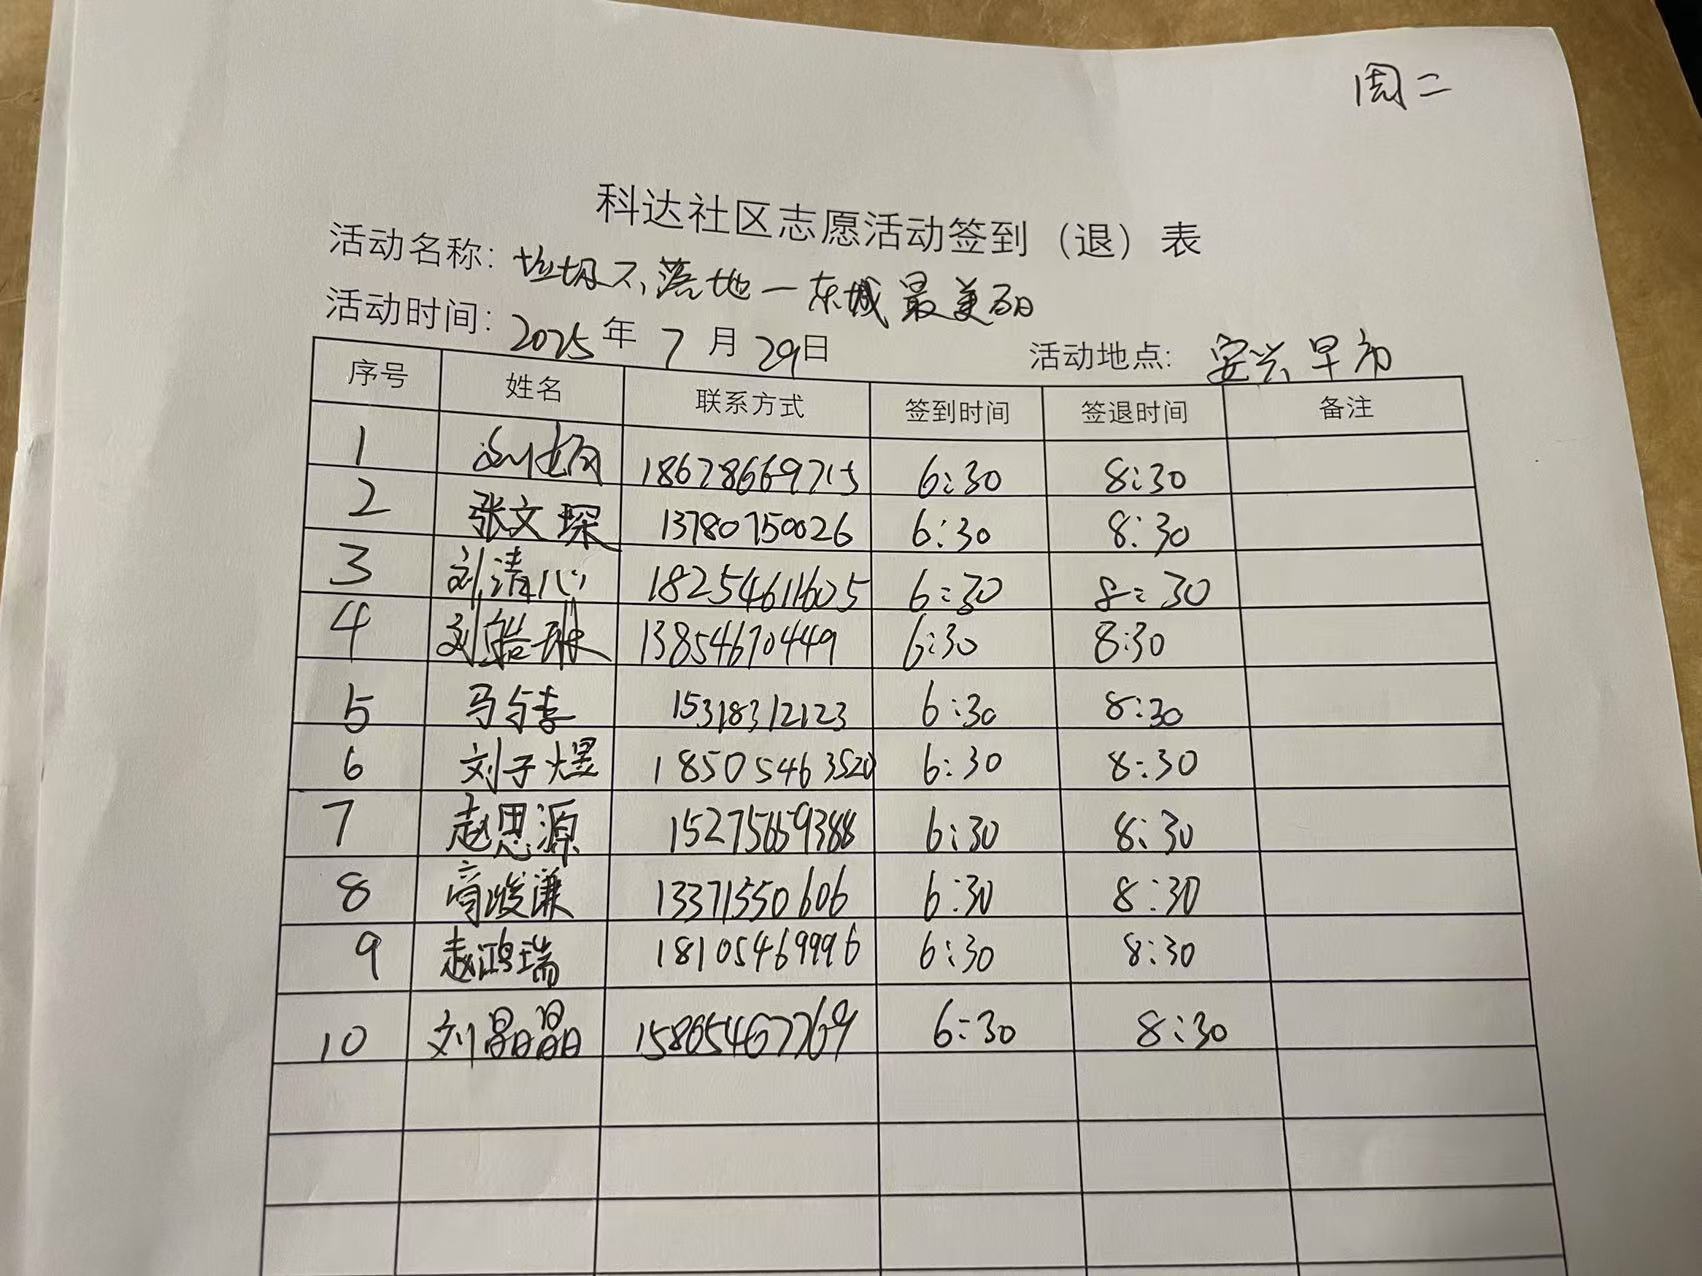 周二
科达社区志愿活动签到（退）表
活动名称: 垃圾不落地一东城最美丽
活动时间: 2025年7月29日 活动地点: 安兴早市
序号 姓名 联系方式 签到时间 签退时间 备注
1 18678669715 6:30 8:30
2 张文琛 13780750026 6:30 8:30
3 刘清心 18254611605 6:30 8:30
4 刘皓琳 13854670449 6:30 8:30
5 马与李 15318312123 6:30 8:30
6 刘子煜 18505463520 6:30 8:30
7 赵思源 15275659388 6:30 8:30
8 商峻谦 13371550606 6:30 8:30
9 赵鸿瑞 18105469996 6:30 8:30
10 刘晶晶 15865467769 6:30 8:30